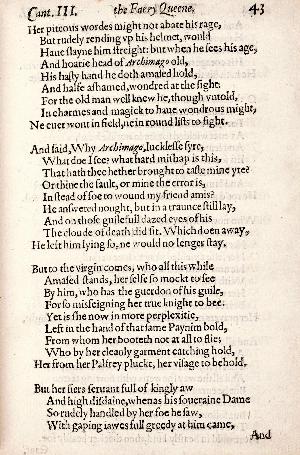 Cant. III. the Faery Queene. 43
Her piteous wordes might not abate his rage,
But rudely rending vp his helmet, would
Haue slayne him streight: but when he sees his age,
And hoarie head of Archimago old,
His hasty hand he doth amased hold,
And halfe ashamed, wondred at the sight:
For the old man well knew he, though vntold,
In charmes and magick to haue wondrous might,
Ne euer wont in field, ne in round lists to fight.
And said, Why Archimago, lucklesse syre,
What doe I see? what hard mishap is this,
That hath thee hether brought to taste mine yre?
Or thine the fault, or mine the error is,
In stead of foe to wound my friend amis?
He answered nought, but in a traunce still lay,
And on those guilefull dazed eyes of his
The cloude of death did sit. Which doen away,
He left him lying so, ne would no lenger stay.
But to the virgin comes, who all this while
Amased stands, her selfe so mockt to see
By him, who has the guerdon of his guile,
For so misfeigning her true knight to bee:
Yet is she now in more perplexitie,
Left in the hand of that same Paynim bold,
From whom her booteth not at all to flie;
Who by her cleanly garment catching hold,
Her from her Palfrey pluckt, her visage to behold.
But her fiers seruant full of kingly aw
And high disdaine, whenas his soueraine Dame
So rudely handled by her foe he saw,
With gaping iawes full greedy at him came,
And